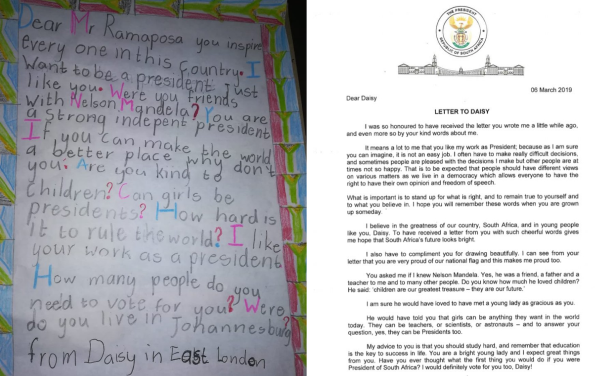 Dear Mr Ramaposa you inspire
every one in this country. I
want to be a president just
like you. Were you friends
with Nelson Mandela? You are
a strong indepent president
If, you can make the world
a better place why don't
you. Are you kind to
children? Can girls be
presidents? How hard is
it to rule the world? I like
your work as a president
How many people do you
need to vote for you? Were
do you live in Johannesburg
from Daisy in East London
THE PRESIDENT
REPUBLIC OF SOUTH AFRICA
06 March 2019
Dear Daisy
LETTER TO DAISY
I was so honoured to have received the letter you wrote me a little while ago,
and even more so by your kind words about me.
It means a lot to me that you like my work as President; because as I am sure
you can imagine, it is not an easy job. I often have to make really difficult decisions,
and sometimes people are pleased with the decisions I make but other people are at
times not so happy. That is to be expected that people should have different views
on various matters as we live in a democracy which allows everyone to have the
right to have their own opinion and freedom of speech.
What is important is to stand up for what is right, and to remain true to yourself and
to what you believe in. I hope you will remember these words when you are grown
up someday.
I believe in the greatness of our country, South Africa, and in young people
like you, Daisy. To have received a letter from you with such cheerful words gives
me hope that South Africa's future looks bright.
I also have to compliment you for drawing beautifully. I can see from your
letter that you are very proud of our national flag and this makes me proud too.
You asked me if I knew Nelson Mandela. Yes, he was a friend, a father and a
teacher to me and to many other people. Do you know how much he loved children?
He said: 'children are our greatest treasure – they are our future.'
I am sure he would have loved to have met a young lady as gracious as you.
He would have told you that girls can be anything they want in the world
today. They can be teachers, or scientists, or astronauts – and to answer your
question, yes, they can be Presidents too.
My advice to you is that you should study hard, and remember that education
is the key to success in life. You are a bright young lady and I expect great things
from you. Have you ever thought what the first thing you would do if you were
President of South Africa? I would definitely vote for you too, Daisy!